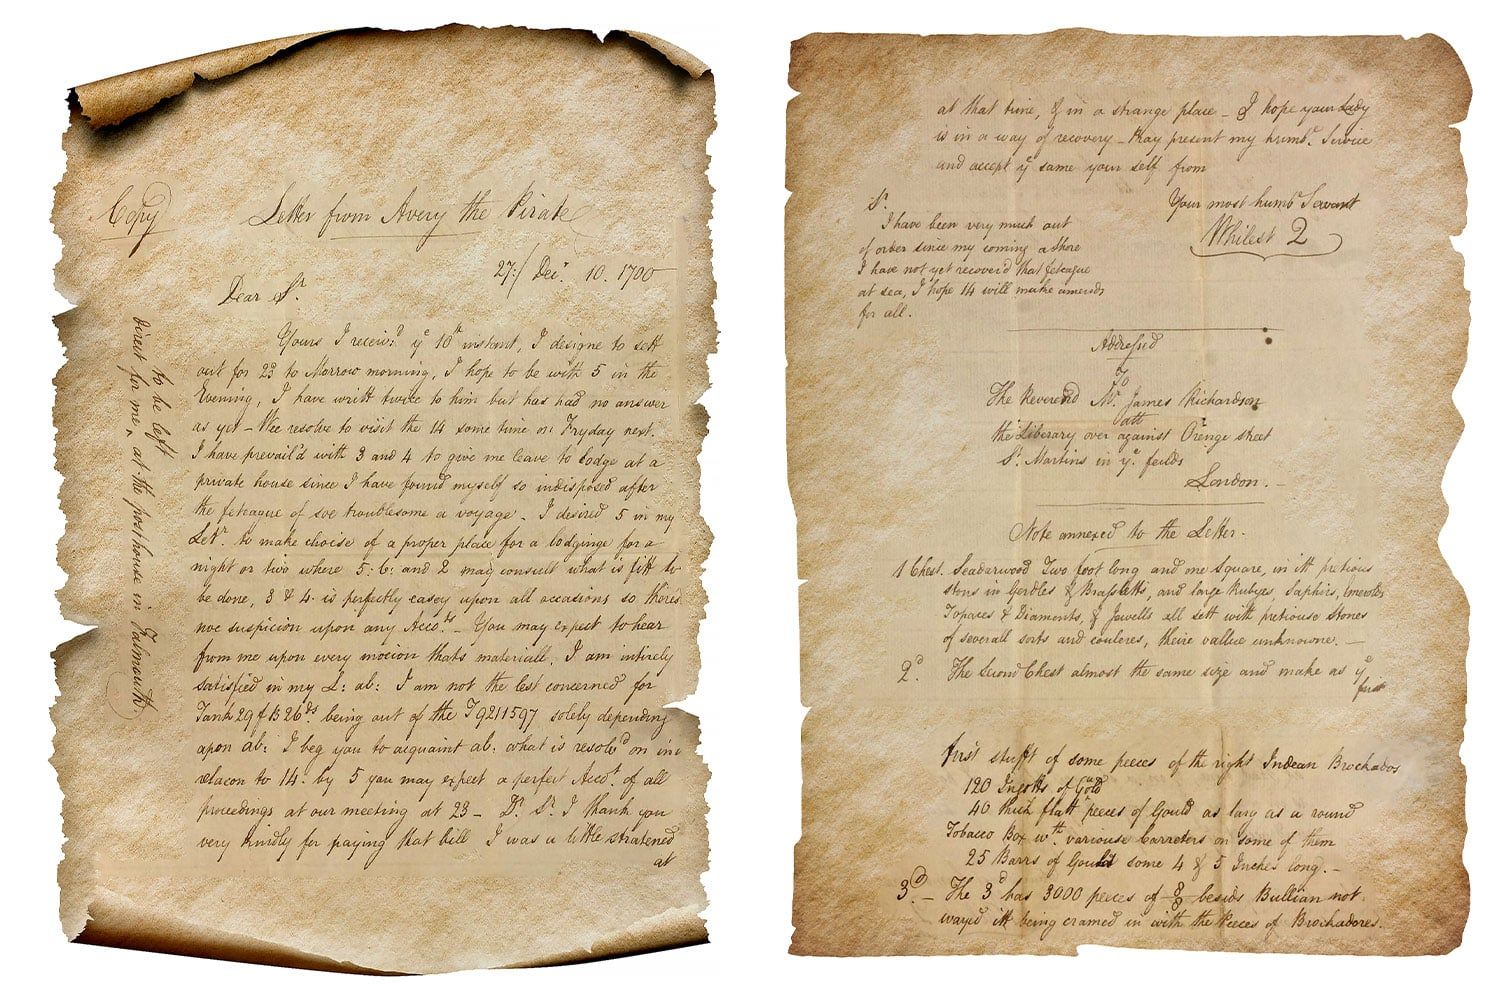 Copy
Letter from Avery the Pirate
27:/ Decr 10. 1700
Dear Sr
Yours I receivd ye 10th instant, I designe to sett
out for 23 to Morrow morning, I hope to be with 5 in the
Evening, I have writt twice to him but has had no answer
as yet - Wee resolve to visit the 14 some time on Fryday next.
I have prevail'd with 3 and 4 to give me leave to lodge at a
private house since I have found myself so indisposed after
the feteague of soe troublesome a voyage. I desired 5 in my
Letr. to make choise of a proper place for a lodginge for a
night or two where 5: 6: and 2 may consult what is fitt to
be done, 3 & 4 is perfectly easey upon all occasions so theres
noe suspicion upon any Accots - You may expect to hear
from me upon every mocion thats materiall, I am intirely
satisfied in my L: ab: I am not the lest concerned for
Tank 29 f B26ds being out of the T9211597 solely depending
apon ab: I beg you to acquaint ab: what is resold on in
relacon to 14. by 5 you may expect a perfect Accot. of all
proceedings at our meeting at 23 - Dr. Sr. I thank you
very kindly for paying that bill I was a little stratened
at
direct for me ^ at the posthouse in Falmouth
to be left
at that time, & in a strange place - I hope your Lady
is in a way of recovery - Pray present my humbe. Service
and accept ye same your self from
Your most humb Servant
Whilest 2
S.
I have been very much out
of order since my coming a Shore
I have not yet recoverd that feteague
at sea, I hope 14 will make amends
for all.
Addressed
To
The Reverend Mr. James Richardson
att
the Liberary over against Orenge street
St. Martins in ye. feilds
London. -
Note annexed to the Letter.
1 Chest. Seadarwood Two foot long and one Square, in itt pretious
stons in Gerdles & Brasletts, and large Rubyes, Saphirs, Emeroles
Topaces & Diaments, & Jewells all sett with pretiouse Stones
of severall sorts and couleres, theire vallue unknowne. -
2d. The Second Chest almost the same size and make as ye
first
first stufft of some peeces of the right Indean Brochados
120 Ingotts of Gold
40 thick flatt peeces of Gould as larg as a round
Tobacco Box wth. variouse Carreters on some of them
25 Barrs of Gould some 4 & 5 Inches long. -
3d. - The 3d has 3000 peeces of 8/8 besids Bullian not
wayed itt being cramed in with the Peeces of Brochadores.